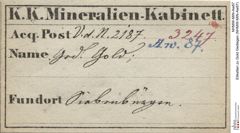 K.K. Mineralien-Kabinett
Acq. Post V.d.N. 2187. 3247
A.v. 87.
Name Ged. Gold,
Fundort Siebenbürgen.